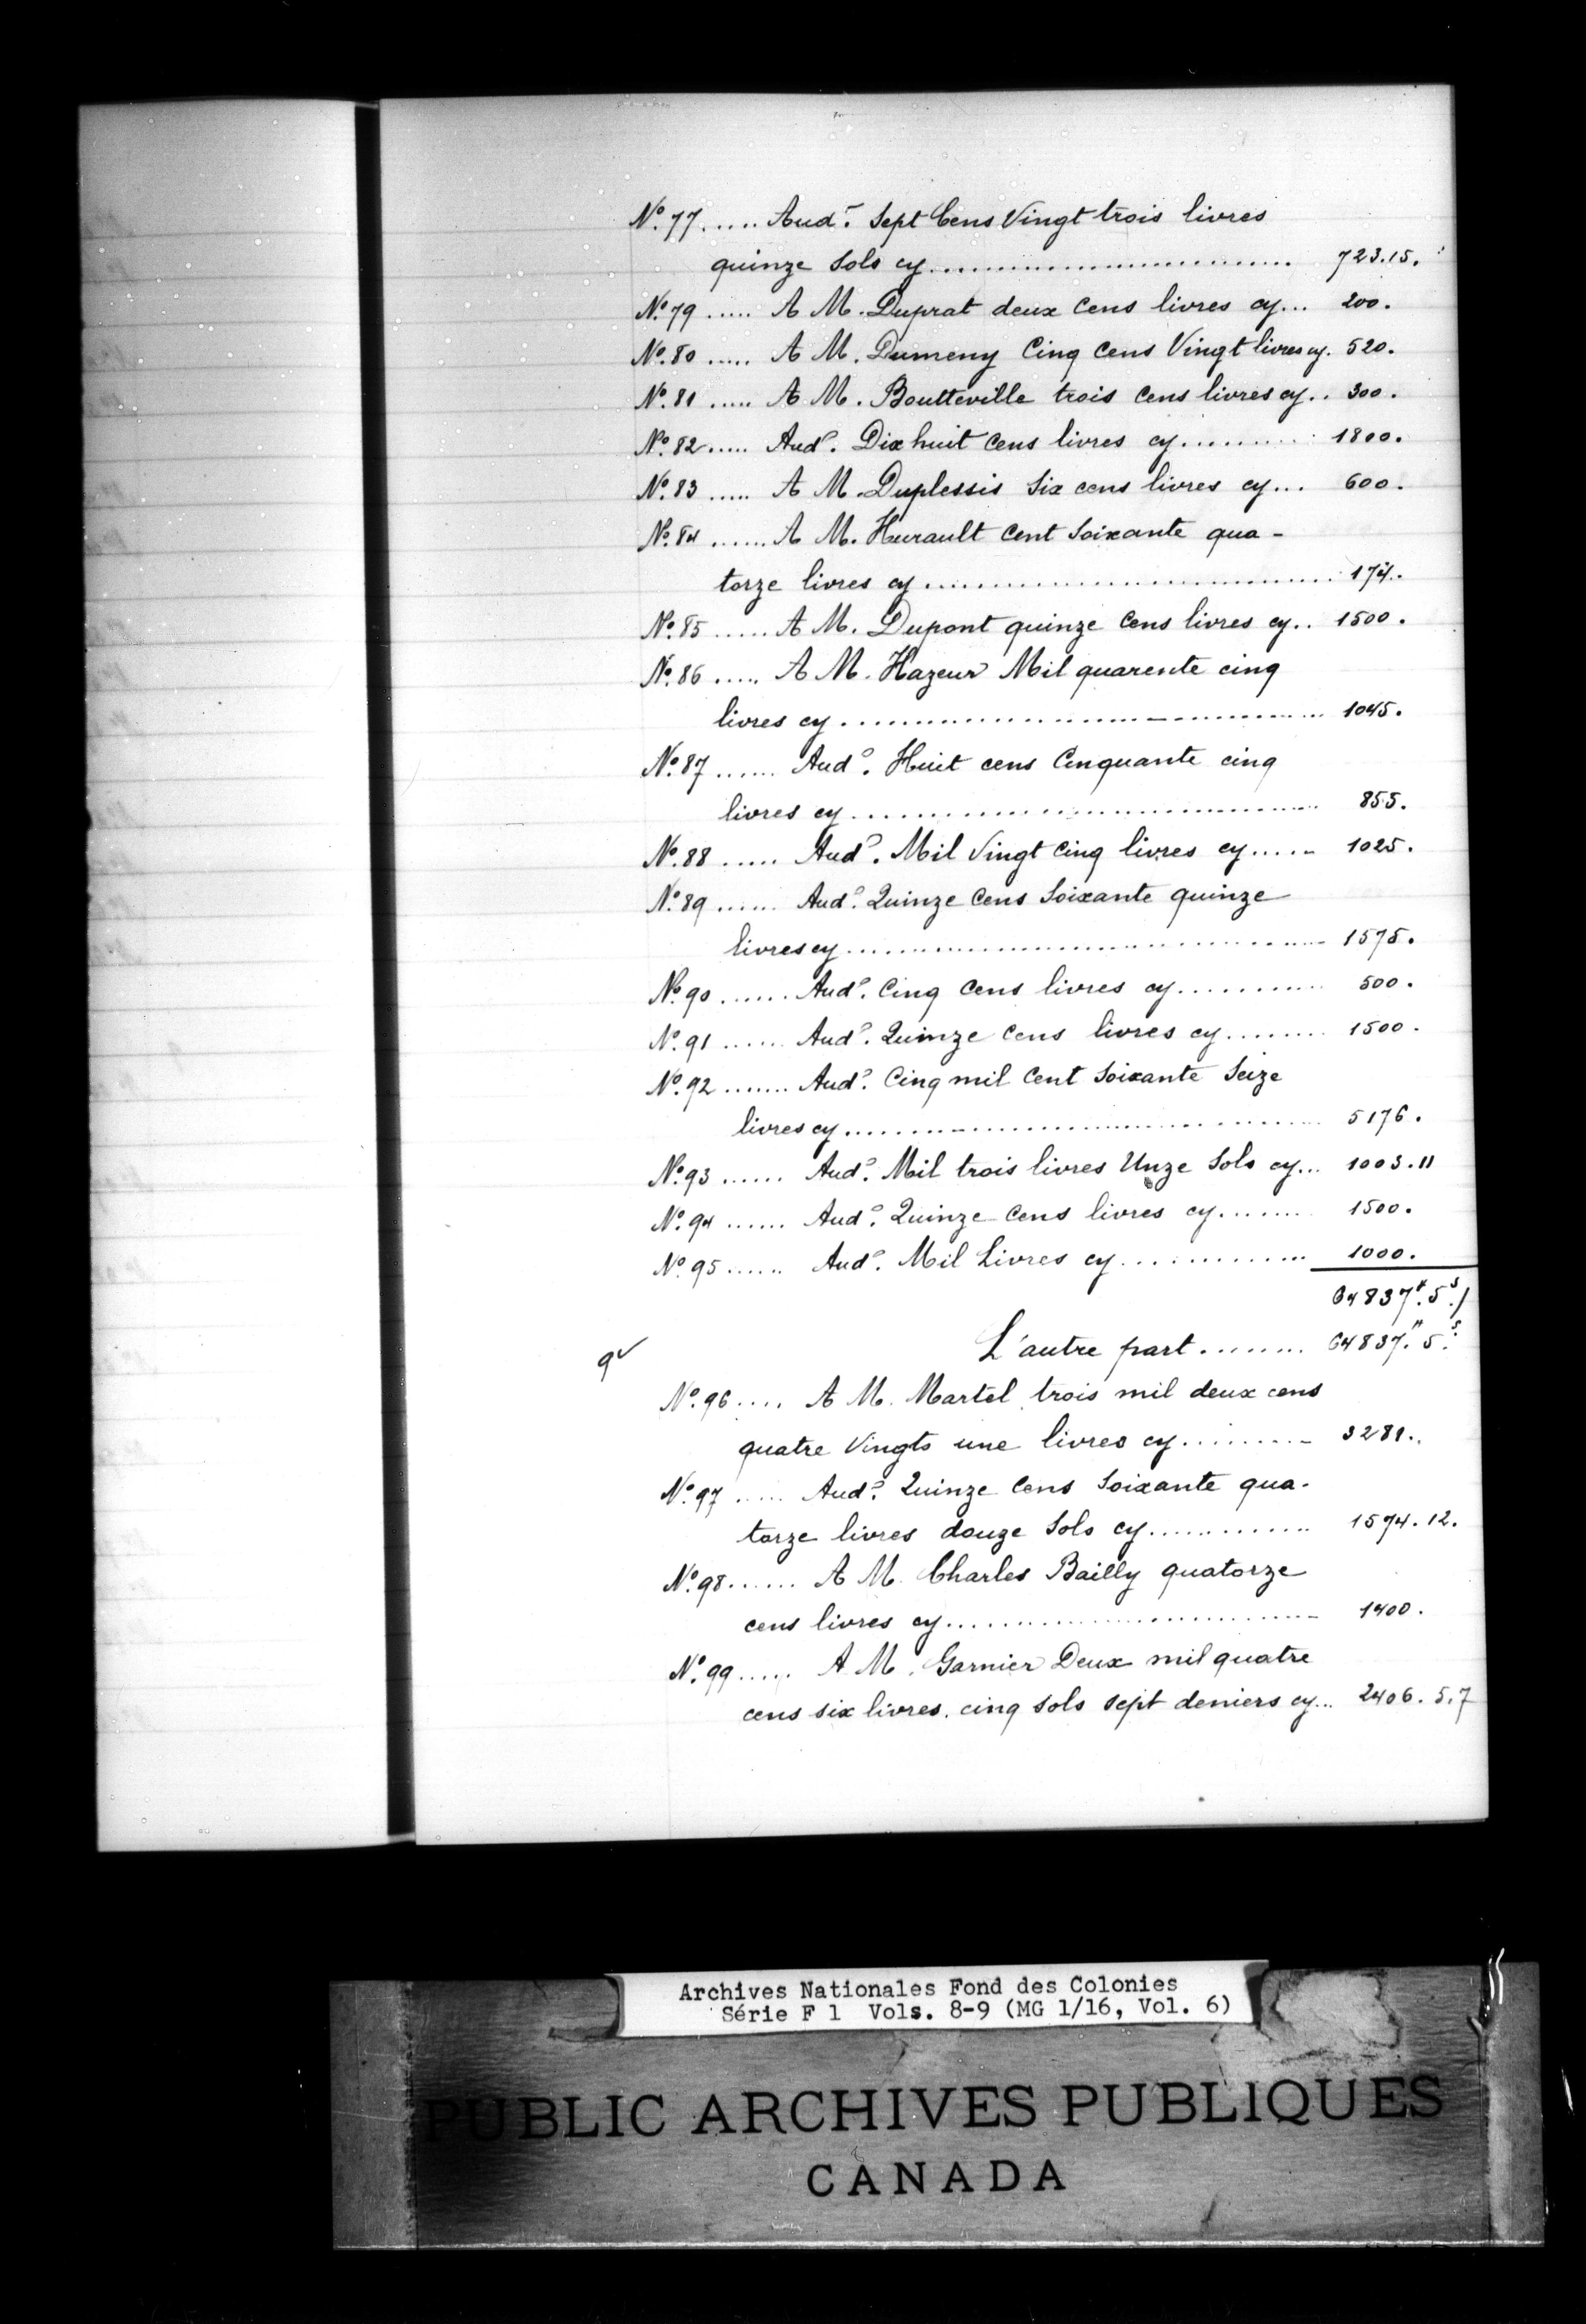 Nº. 77 ..... Aud.t Sept Cens Vingt trois livres
quinze Sols cy ........................... 723.15.
Nº. 79 ..... A M. Duprat deux Cens livres cy... 200.
Nº. 80 ..... A M. Dumeny Cinq Cens Vingt livres cy. 520.
Nº. 81 ..... A M. Boutteville trois Cens livres cy.. 300.
Nº. 82 ..... Aud.º Dix huit Cens livres cy .......... 1800.
Nº. 83 ..... A M. Duplessis Six cens livres cy... 600.
Nº. 84 ...... A M. Hurault Cent Soixante qua-
torze livres cy .............................. 174.
Nº. 85 ...... A M. Dupont quinze Cens livres cy.. 1500.
Nº. 86 ..... A M. Hazeur Mil quarente cinq
livres cy .................................. 1045.
Nº. 87 ...... Aud.º Huit cens Cinquante cinq
livres cy .................................. 855.
Nº. 88 ..... Aud.º Mil Vingt Cinq livres cy..... 1025.
Nº. 89 ...... Aud.º Quinze Cens Soixante quinze
livres cy .................................. 1575.
Nº. 90 ...... Aud.º Cinq Cens livres cy ........... 500.
Nº. 91 ...... Aud.º Quinze Cens livres cy ........ 1500.
Nº. 92 ....... Aud.º Cinq mil Cent Soixante Seize
livres cy .................................. 5176.
Nº. 93 ...... Aud.º Mil trois livres Unze Sols cy... 1003.11
Nº. 94 ...... Aud.º Quinze Cens livres cy ....... 1500.
Nº. 95 ...... Aud.º Mil Livres cy .............. 1000.
64837#.5s./
L'autre part ........ 64837.#5.s
Nº. 96 .... A M. Martel trois mil deux cens
quatre Vingts une livres cy ......... 3281.
Nº. 97 ..... Aud.º Quinze Cens Soixante qua-
torze livres douze Sols cy ............ 1574.12.
Nº. 98 ...... A M. Charles Bailly quatorze
cens livres cy ........................... 1400.
Nº. 99 ..... A M. Garnier Deux mil quatre
cens six livres, cinq sols sept deniers cy... 2406.5.7
Archives Nationales Fond des Colonies
Série F 1 Vols. 8-9 (MG 1/16, Vol. 6)
PUBLIC ARCHIVES PUBLIQUES
CANADA